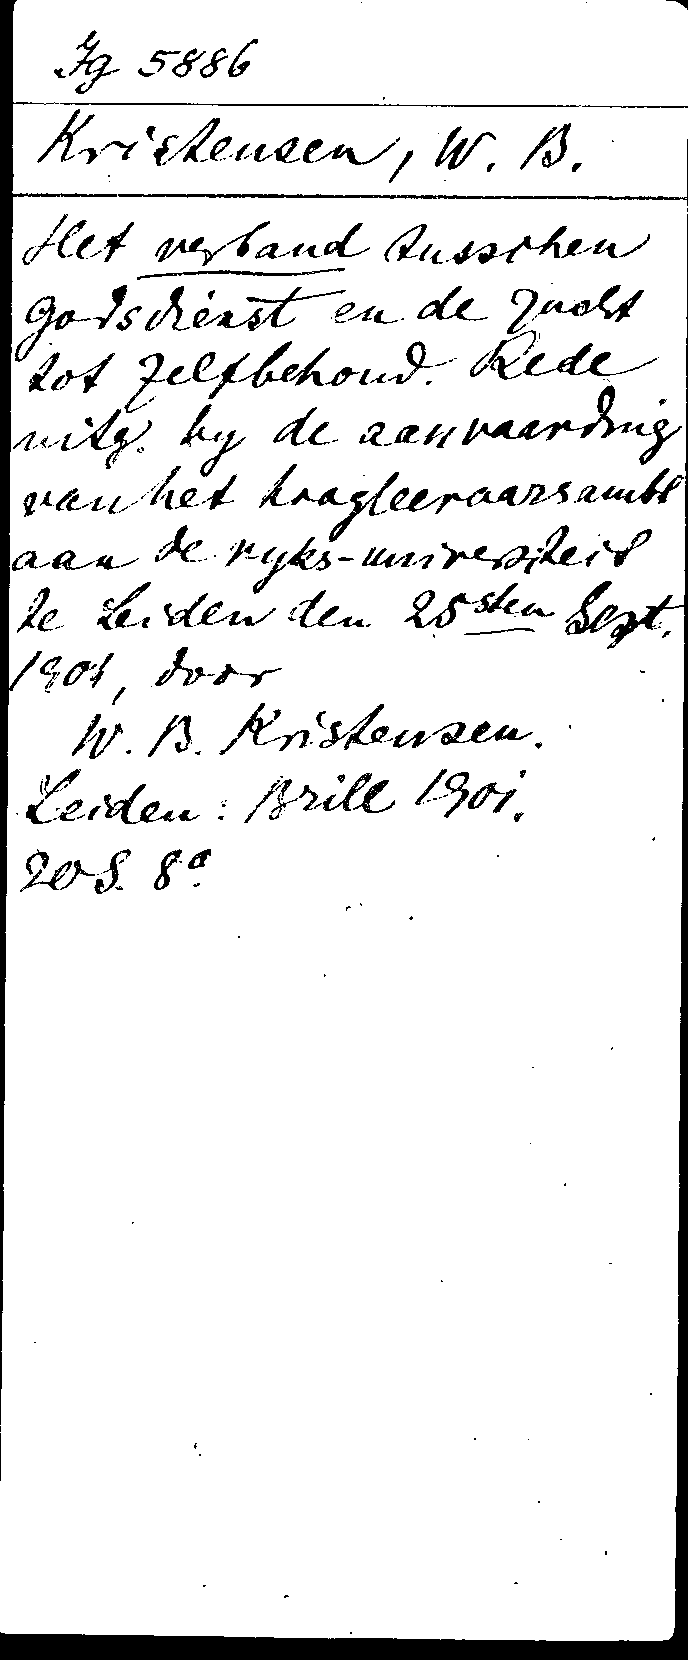 Ig 5886
Kristensen, W. B.
Het verband tusschen
godsdienst en de zucht
tot zelfbehoud. Rede
uitg. by de aanvaarding
van het hoogleeraarsambt
aan de ryks-universiteit
te Leiden den 25sten Sept.
1901, door
W. B. Kristensen.
Leiden: Brill 1901.
20 S. 8°